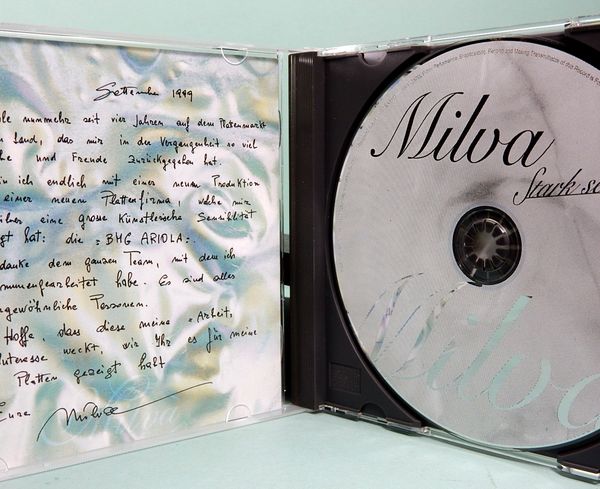 Settembre 1999
le nummehr seit vier Jahren auf dem Plattenmarkt
Land, das mir in der Vergangenheit so viel
he und Freude zurückgegeben hat.
in ich endlich mit einer neuen Produktion
einer neuen Plattenfirma, welche mir
über eine große Künstlerische Sensibilität
igt hat: die "BMG ARIOLA".
danke dem ganzen Team, mit dem ich
mmengearbeitet habe. Es sind alles
gewöhnliche Personen.
Hoffe, dass diese meine "Arbeit,
Interesse weckt, wie Ihr es für meine
Platten gezeigt habt
Eure Milva
Milva
Milva
Stark se
Milva